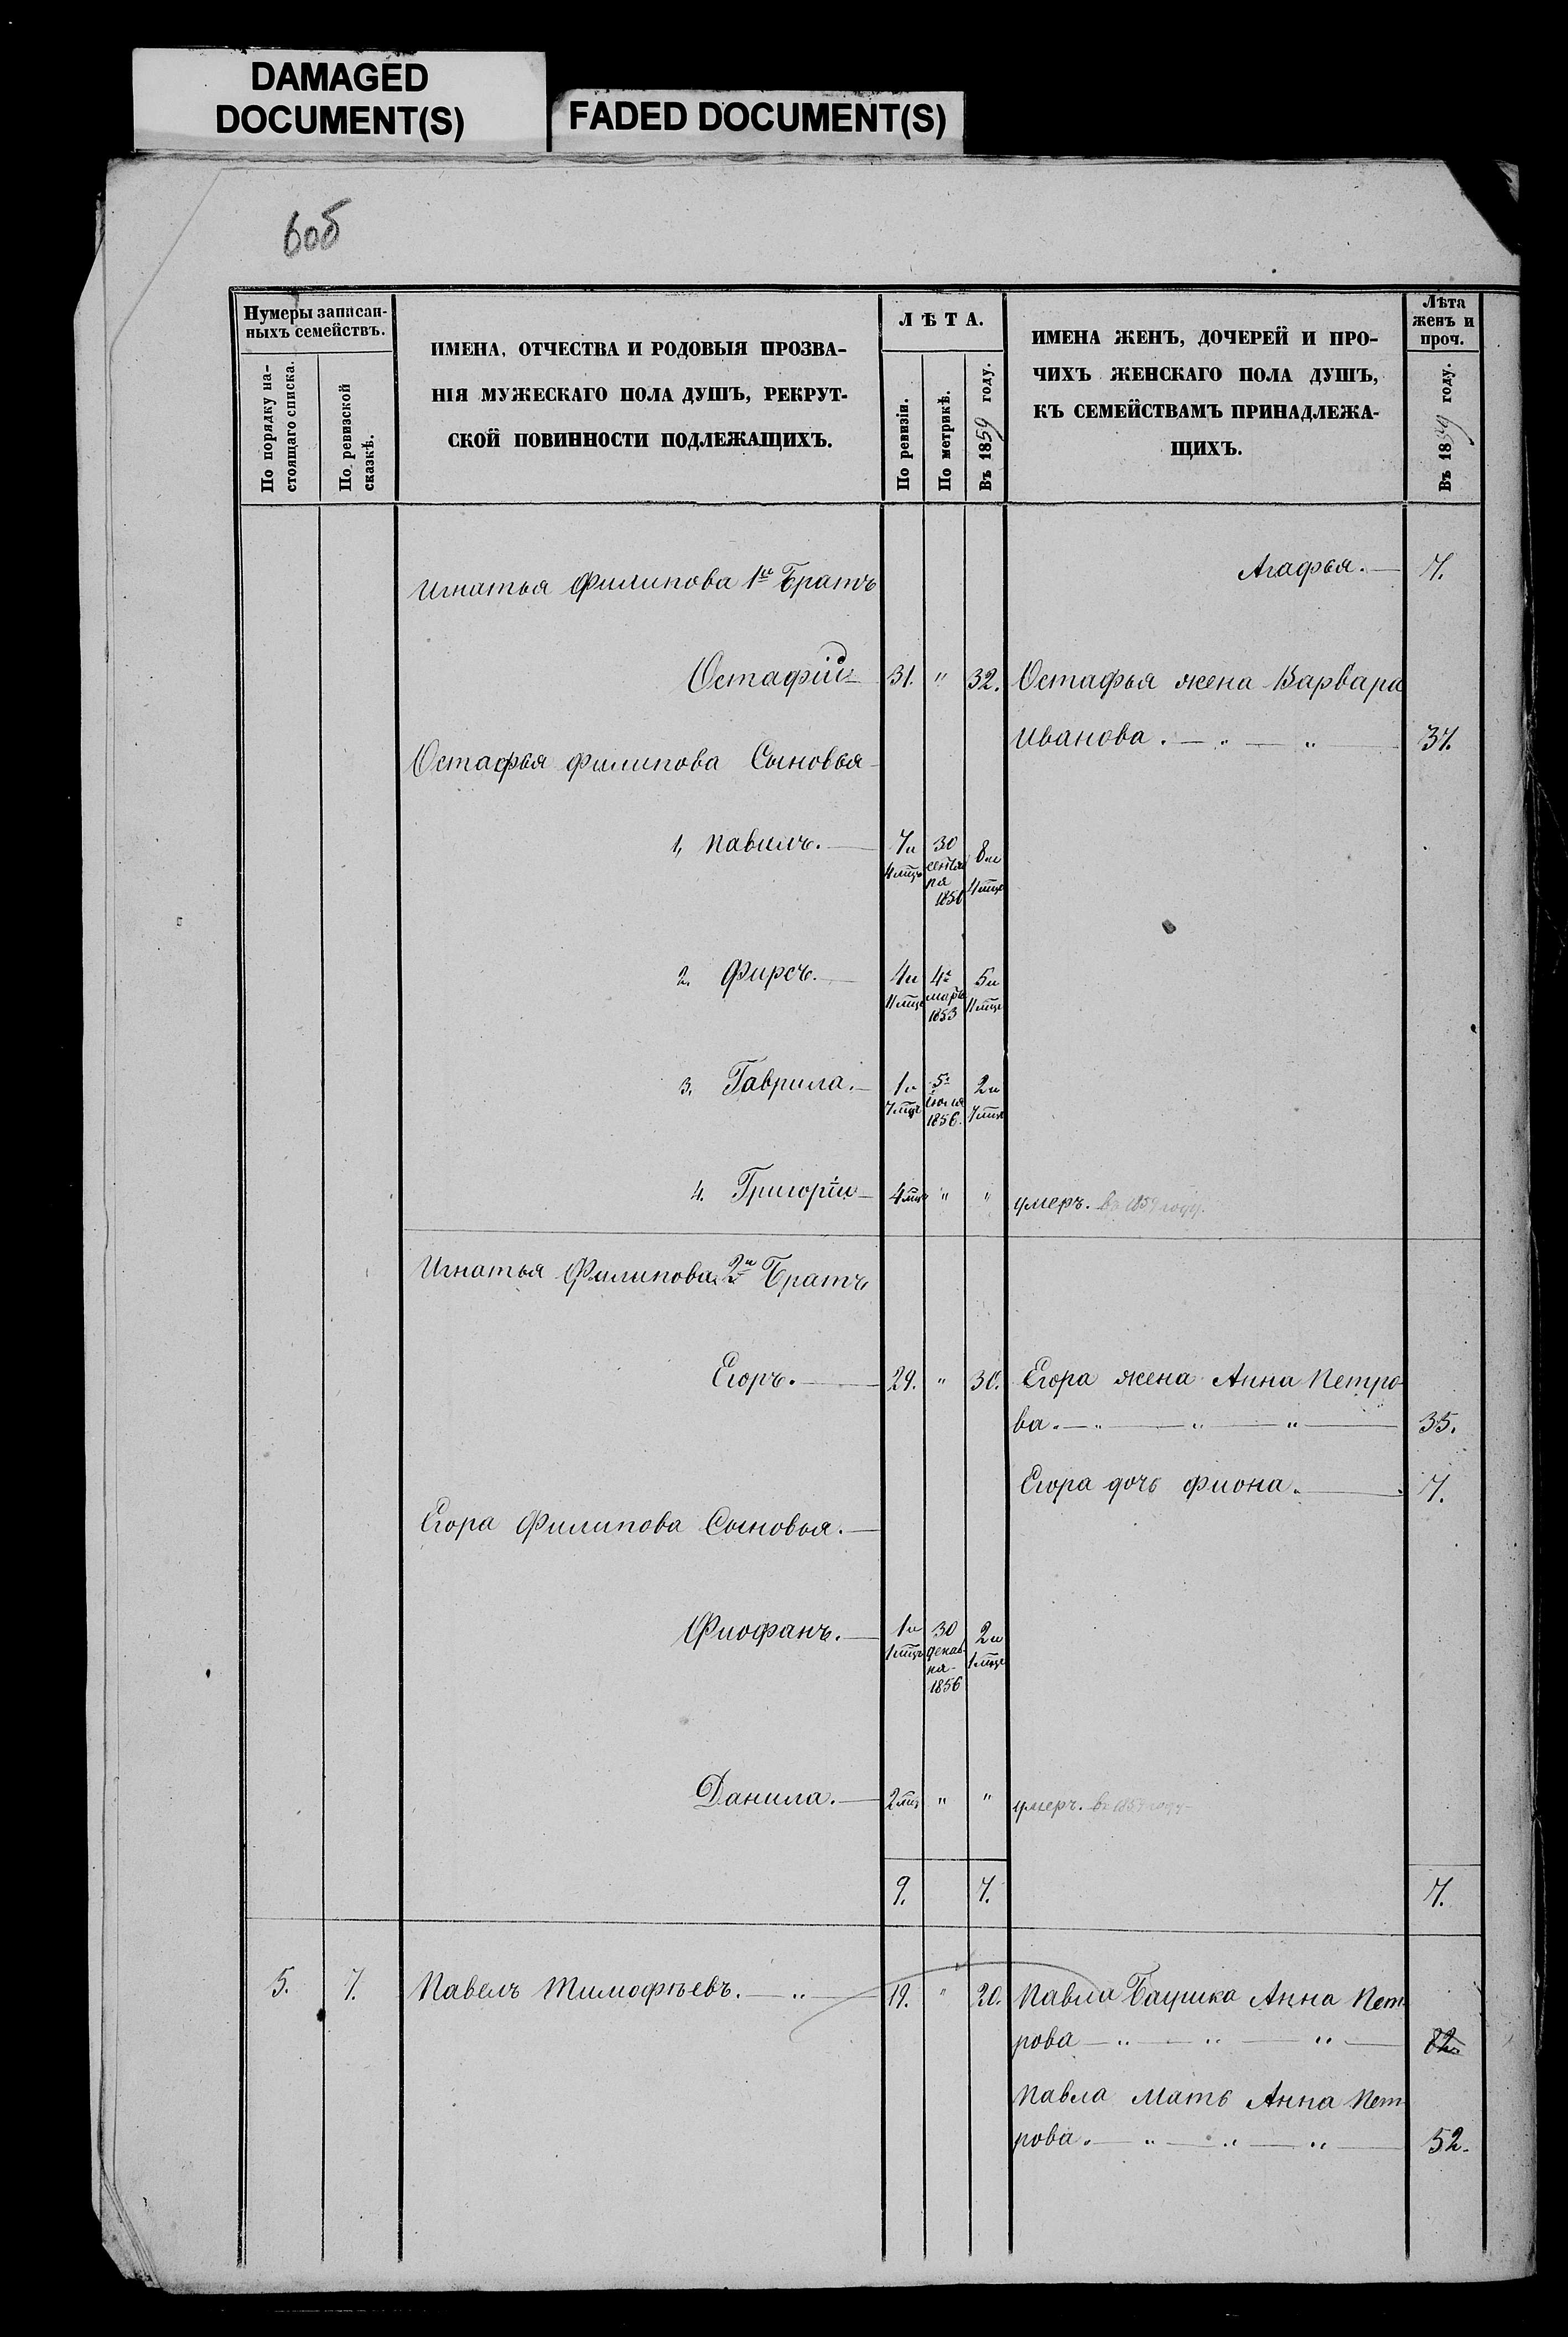 DAMAGED
DOCUMENT(S)
FADED DOCUMENT(S)
6об
Нумеры записан-
ныхъ семействъ.
По порядку на-
стоящаго списка.
По ревизской
сказкѣ.
ИМЕНА, ОТЧЕСТВА И РОДОВЫЯ ПРОЗВА-
НІЯ МУЖЕСКАГО ПОЛА ДУШЪ, РЕКРУТ-
СКОЙ ПОВИННОСТИ ПОДЛЕЖАЩИХЪ.
ЛѢТА.
По ревизіи.
По метрикѣ.
Въ 1859 году.
ИМЕНА ЖЕНЪ, ДОЧЕРЕЙ И ПРО-
ЧИХЪ ЖЕНСКАГО ПОЛА ДУШЪ,
КЪ СЕМЕЙСТВАМЪ ПРИНАДЛЕЖА-
ЩИХЪ.
Лѣта
женъ и
проч.
Въ 1859 году.
Агафья. 7.
Игнатья Филипова 1й Братъ
Остафій 31. " 32. Остафья жена Варвара
Иванова. 37.
Остафья Филипова Сыновья
1, Павилъ. 7и 30 8и
4мць сентя 4мцс
ря
1850
2. Фирсъ. 4и 4е 5и
11мцс марта 11мцс
1853
3. Гаврила. 1и 5е 2и
7мцс іюля 7мцс
1856.
4. Григорій 4мцс " " умеръ. въ 1859 году.
Игнатья Филипова 2й Братъ
Егоръ. 29. " 30. Егора жена Анна Петро
ва. 35.
Егора дочь Фиона. 7.
Егора Филипова Сыновья.
Фиофанъ. 1и 30 2и
1мцъ декаб 1мцс
ря
1856
Данила. 2мц " " умеръ. въ 1859 году
9. 7. 7.
5. 7. Павелъ Тимофѣевъ. 19. " 20. Павла Баушка Анна Пет
рова 82.
Павла Мать Анна Пет
рова. 52.